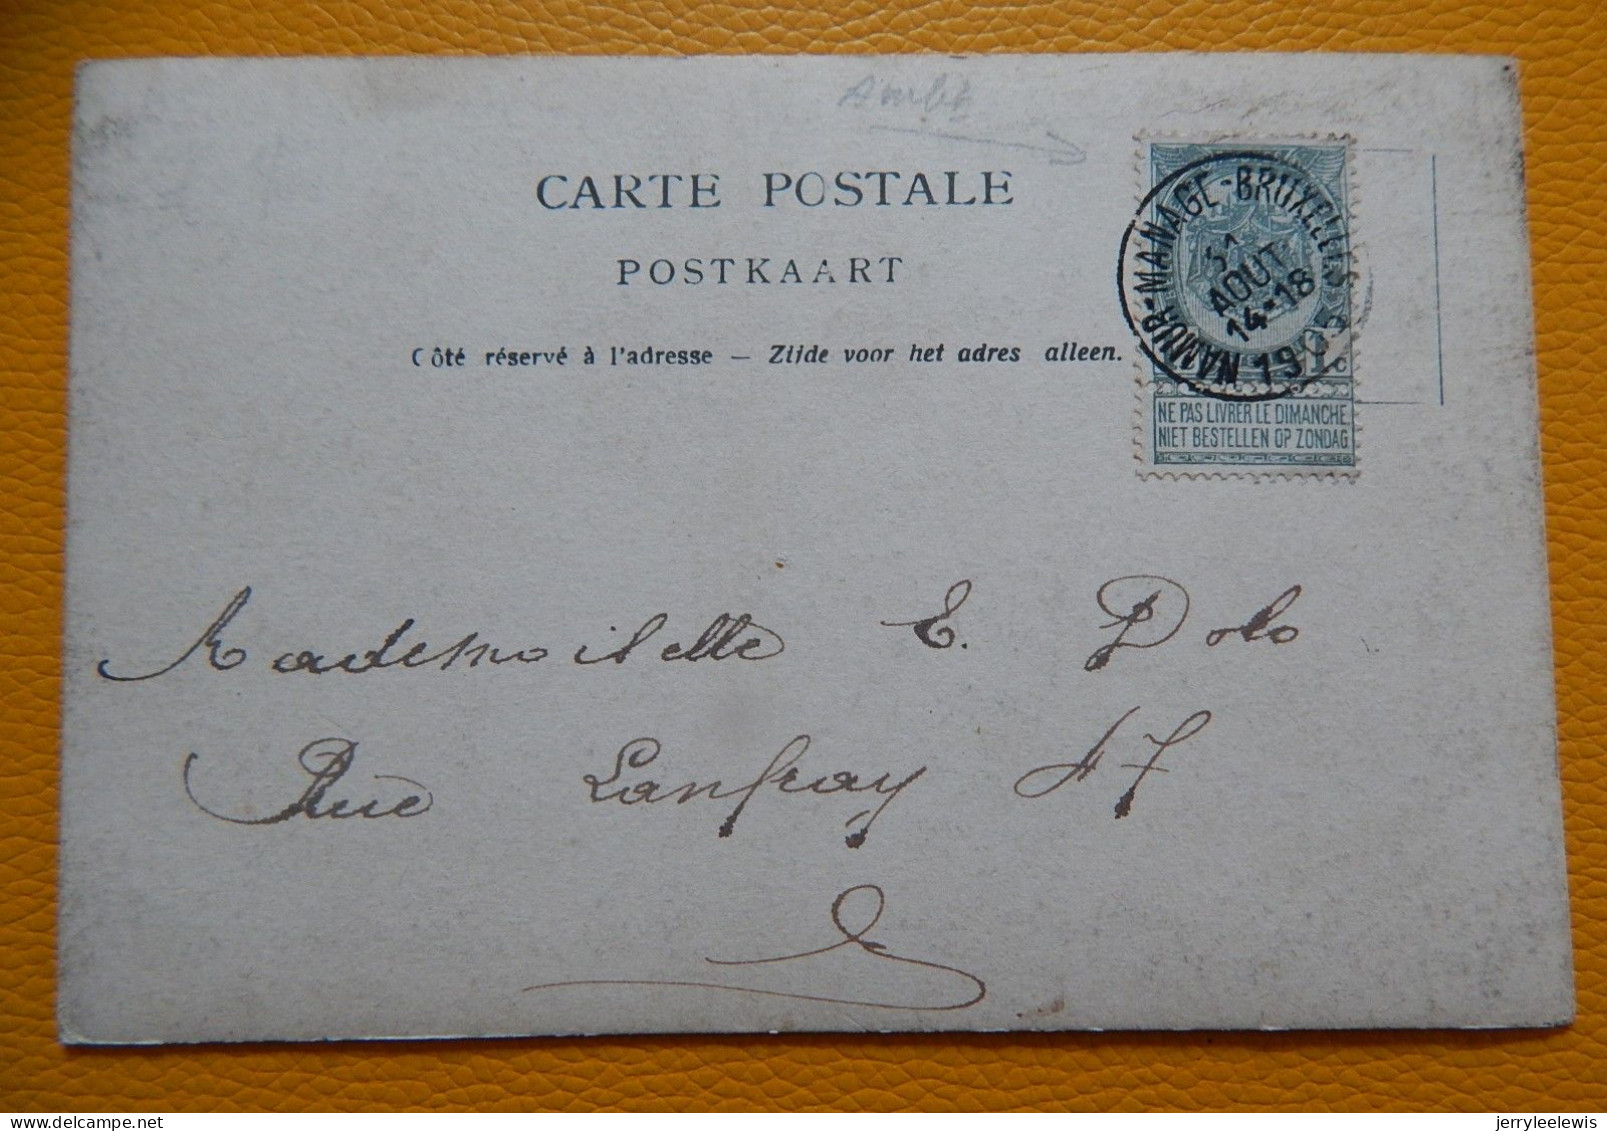 Amb
CARTE POSTALE
POSTKAART
Côté réservé à l'adresse — Zijde voor het adres alleen.
NAMUR-MANAGE-BRUXELLES
31
AOUT
14-18
1905
1c
NE PAS LIVRER LE DIMANCHE
NIET BESTELLEN OP ZONDAG
Mademoiselle E. Dolo
Rue Lanfray 47
delcampe.net
jerryleelewis